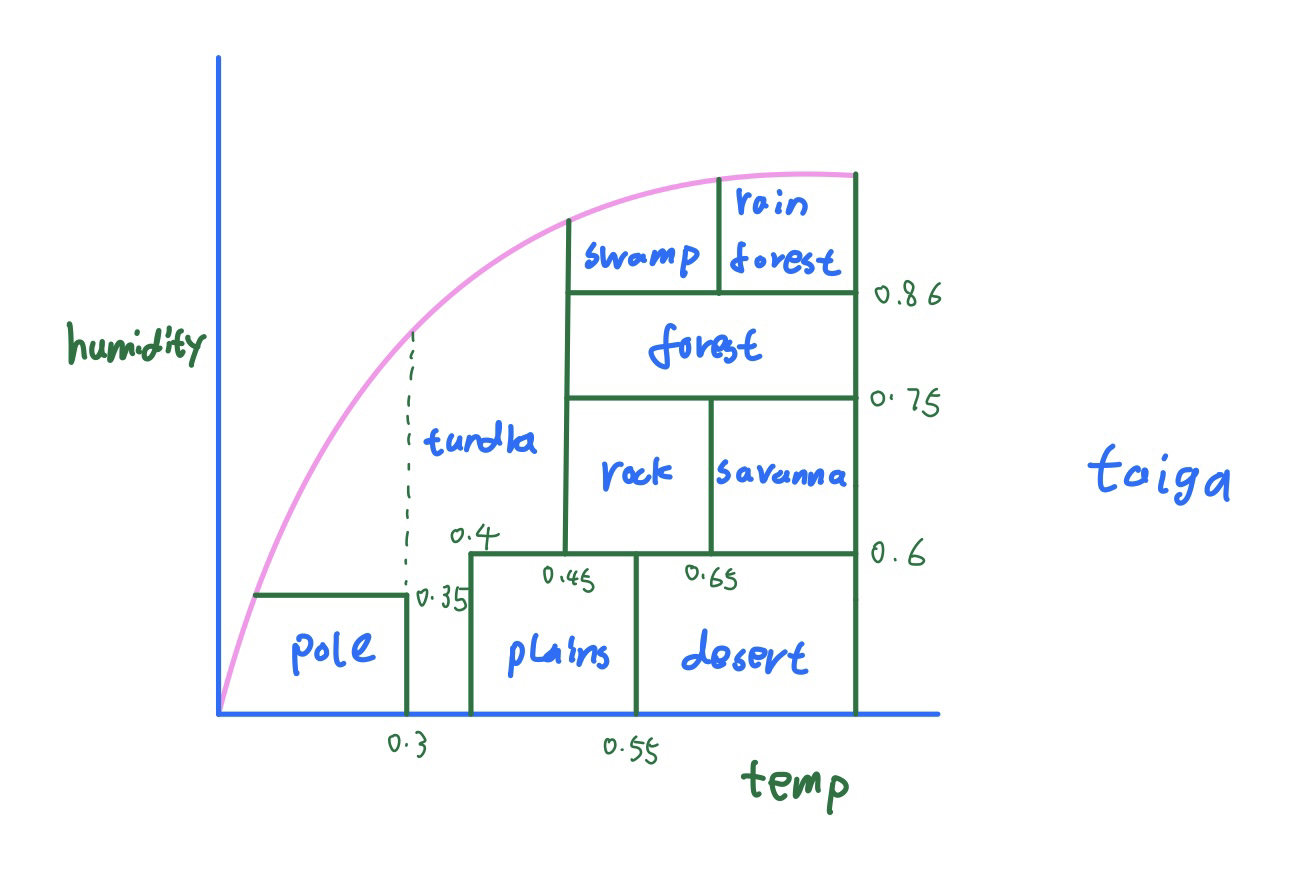 rain
forest
swamp
0.86
humidity
forest
0.75
tundla
rock
savanna
taiga
0.4
0.6
0.45
0.65
0.35
pole
plains
desert
0.3
0.55
temp